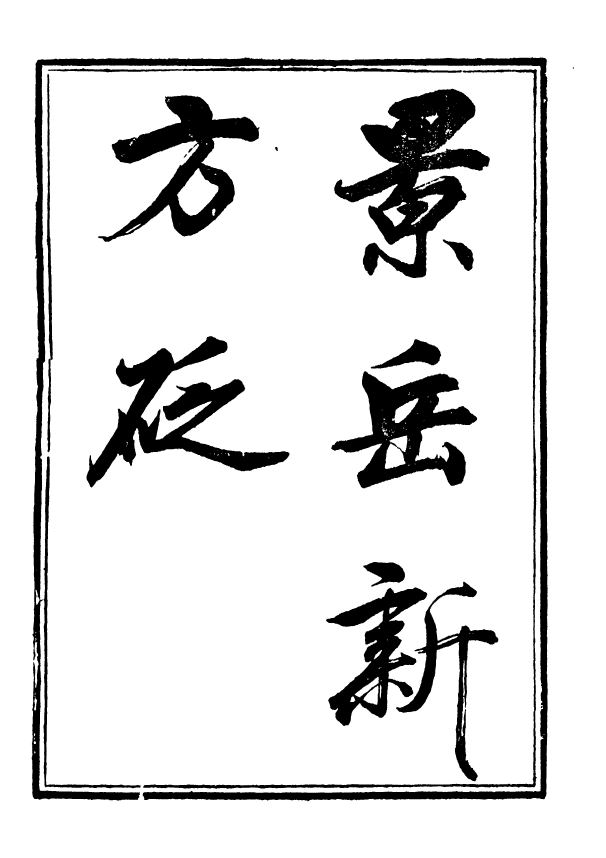 景岳新
方砭